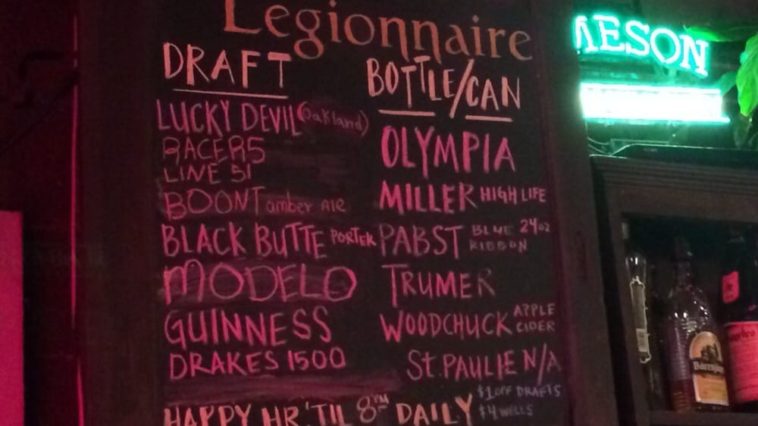 Legionnaire
DRAFT
LUCKY DEVIL (Oakland)
RACER 5
LINE 51
BOONT amber ALE
BLACK BUTTE PORTER
MODELO
GUINNESS
DRAKES 1500
BOTTLE/CAN
OLYMPIA
MILLER HIGH LIFE
PABST BLUE RIBBON 24oz
TRUMER
WOODCHUCK APPLE CIDER
ST. PAULIE N/A
HAPPY HR 'TIL 8PM DAILY
$1 OFF DRAFTS
$4 WELLS
MESON